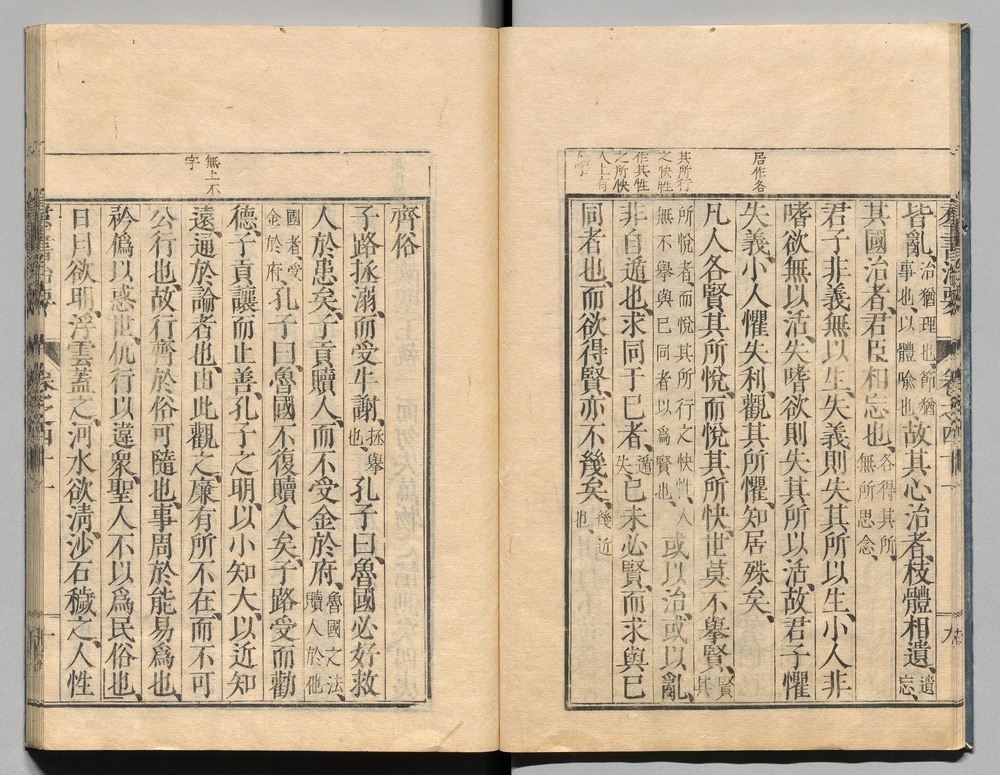 居作各
其所行
之快性
作其性
之所快
人上有
群書治要
卷之四十一
皆亂、治猶理也、節猶事也、以體喻也、故其心治者、枝體相遺、遺忘、
其國治者、君臣相忘也、各得其所、無所思念、
君子非義無以生、失義則失其所以生、小人非
嗜欲無以活、失嗜欲則失其所以活、故君子懼
失義、小人懼失利、觀其所懼、知居殊矣、
凡人各賢其所悅、而悅其所快、世莫不舉賢、賢其
所悅者、而悅其所行之快性、人無不舉與己同者以爲賢也、或以治、或以亂、
非自遁也、求同于己者、遁失、己未必賢、而求與己
同者也、而欲得賢、亦不幾矣、幾近也、
無上不
字
齊俗
子路拯溺、而受牛謝、拯舉也、孔子曰、魯國必好救
人於患矣、子貢贖人、而不受金於府、魯國之法、贖人於他
國者、受金於府、孔子曰、魯國不復贖人矣、子路受而勸
德、子貢讓而止善、孔子之明、以小知大、以近知
遠、通於論者也、由此觀之、廉有所不在、而不可
公行也、故行齊於俗、可隨也、事周於能、易爲也、
矜僞以惑世、伉行以違衆、聖人不以爲民俗也、
日月欲明、浮雲蓋之、河水欲淸、沙石穢之、人性
群書治要
卷之四十一